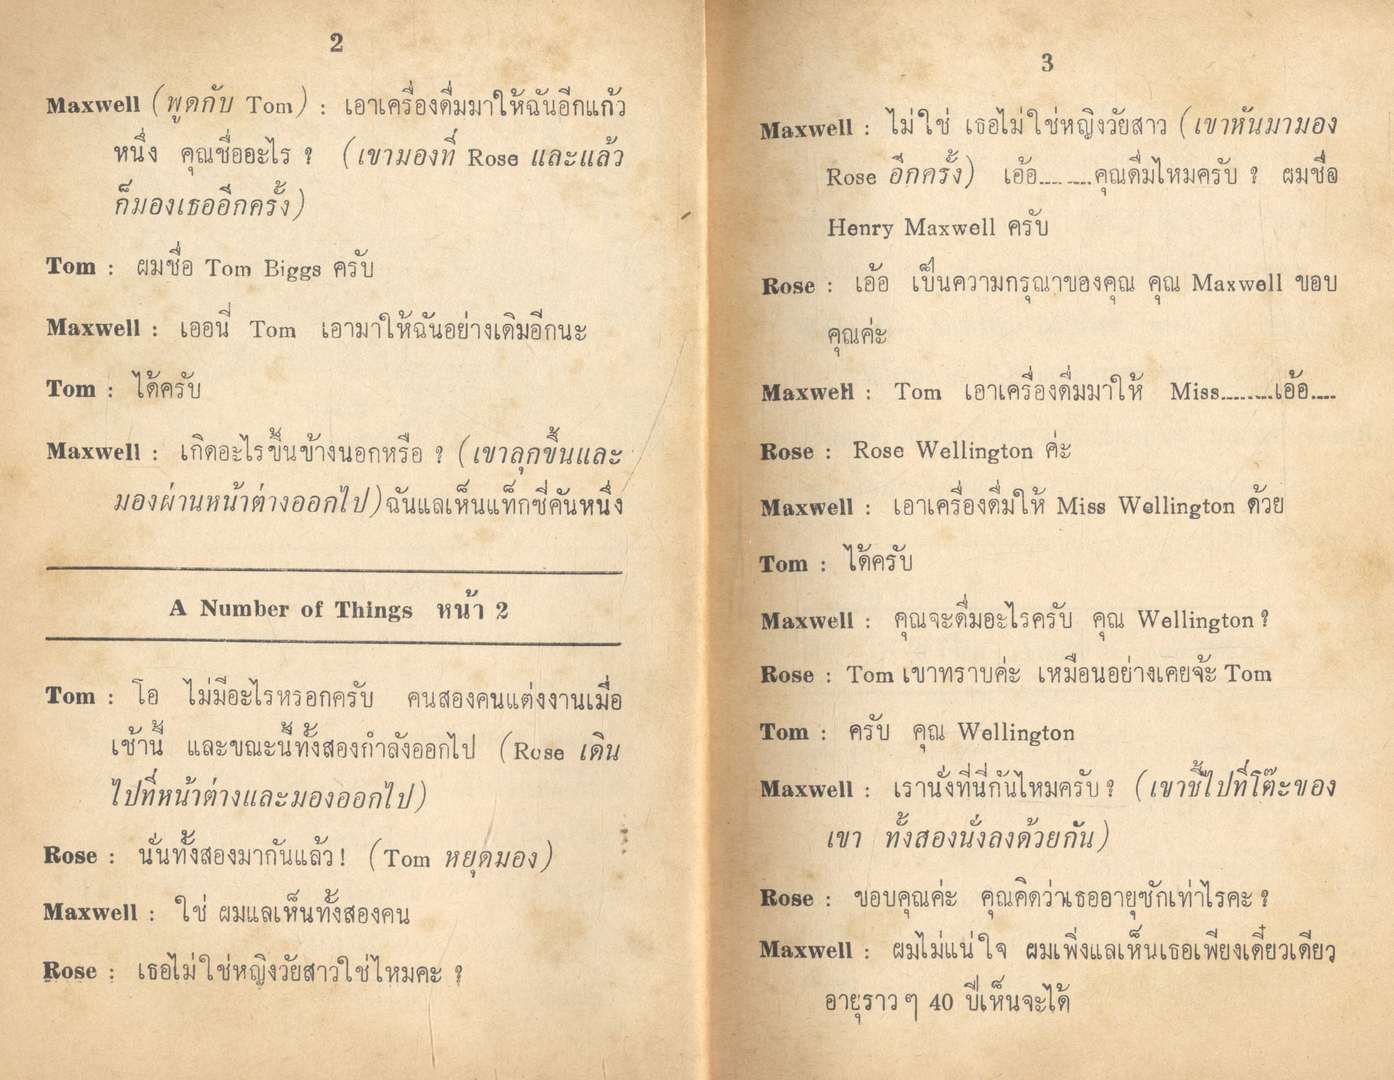 2
Maxwell (พูดกับ Tom) : เอาเครื่องดื่มมาให้ฉันอีกแก้ว
หนึ่ง คุณชื่ออะไร ? (เขามองที่ Rose และแล้ว
ก็มองเธออีกครั้ง)
Tom : ผมชื่อ Tom Biggs ครับ
Maxwell : เออนี่ Tom เอามาให้ฉันอย่างเดิมอีกนะ
Tom : ได้ครับ
Maxwell : เกิดอะไรขึ้นข้างนอกหรือ ? (เขาลุกขึ้นและ
มองผ่านหน้าต่างออกไป) ฉันแลเห็นแท็กซี่คันหนึ่ง
A Number of Things หน้า 2
Tom : โอ ไม่มีอะไรหรอกครับ คนสองคนแต่งงานเมื่อ
เช้านี้ และขณะนี้ทั้งสองกำลังออกไป (Rose เดิน
ไปที่หน้าต่างและมองออกไป)
Rose : นั่นทั้งสองมากันแล้ว! (Tom หยุดมอง)
Maxwell : ใช่ ผมแลเห็นทั้งสองคน
Rose : เธอไม่ใช่หญิงวัยสาวใช่ไหมคะ ?
3
Maxwell : ไม่ใช่ เธอไม่ใช่หญิงวัยสาว (เขาหันมามอง
Rose อีกครั้ง) เอ้อ........คุณดื่มไหมครับ ? ผมชื่อ
Henry Maxwell ครับ
Rose : เอ้อ เป็นความกรุณาของคุณ คุณ Maxwell ขอบ
คุณค่ะ
Maxwell : Tom เอาเครื่องดื่มมาให้ Miss........เอ้อ....
Rose : Rose Wellington ค่ะ
Maxwell : เอาเครื่องดื่มให้ Miss Wellington ด้วย
Tom : ได้ครับ
Maxwell : คุณจะดื่มอะไรครับ คุณ Wellington ?
Rose : Tom เขาทราบค่ะ เหมือนอย่างเคยจ้ะ Tom
Tom : ครับ คุณ Wellington
Maxwell : เรานั่งที่นี่กันไหมครับ ? (เขาชี้ไปที่โต๊ะของ
เขา ทั้งสองนั่งลงด้วยกัน)
Rose : ขอบคุณค่ะ คุณคิดว่าเธออายุซักเท่าไรคะ ?
Maxwell : ผมไม่แน่ใจ ผมเพิ่งแลเห็นเธอเพียงเดี๋ยวเดียว
อายุราว ๆ 40 ปีเห็นจะได้